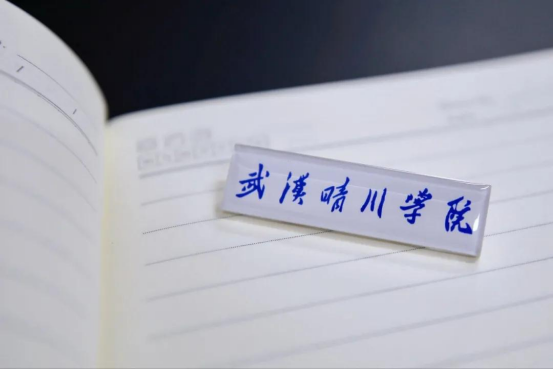 武漢晴川学院